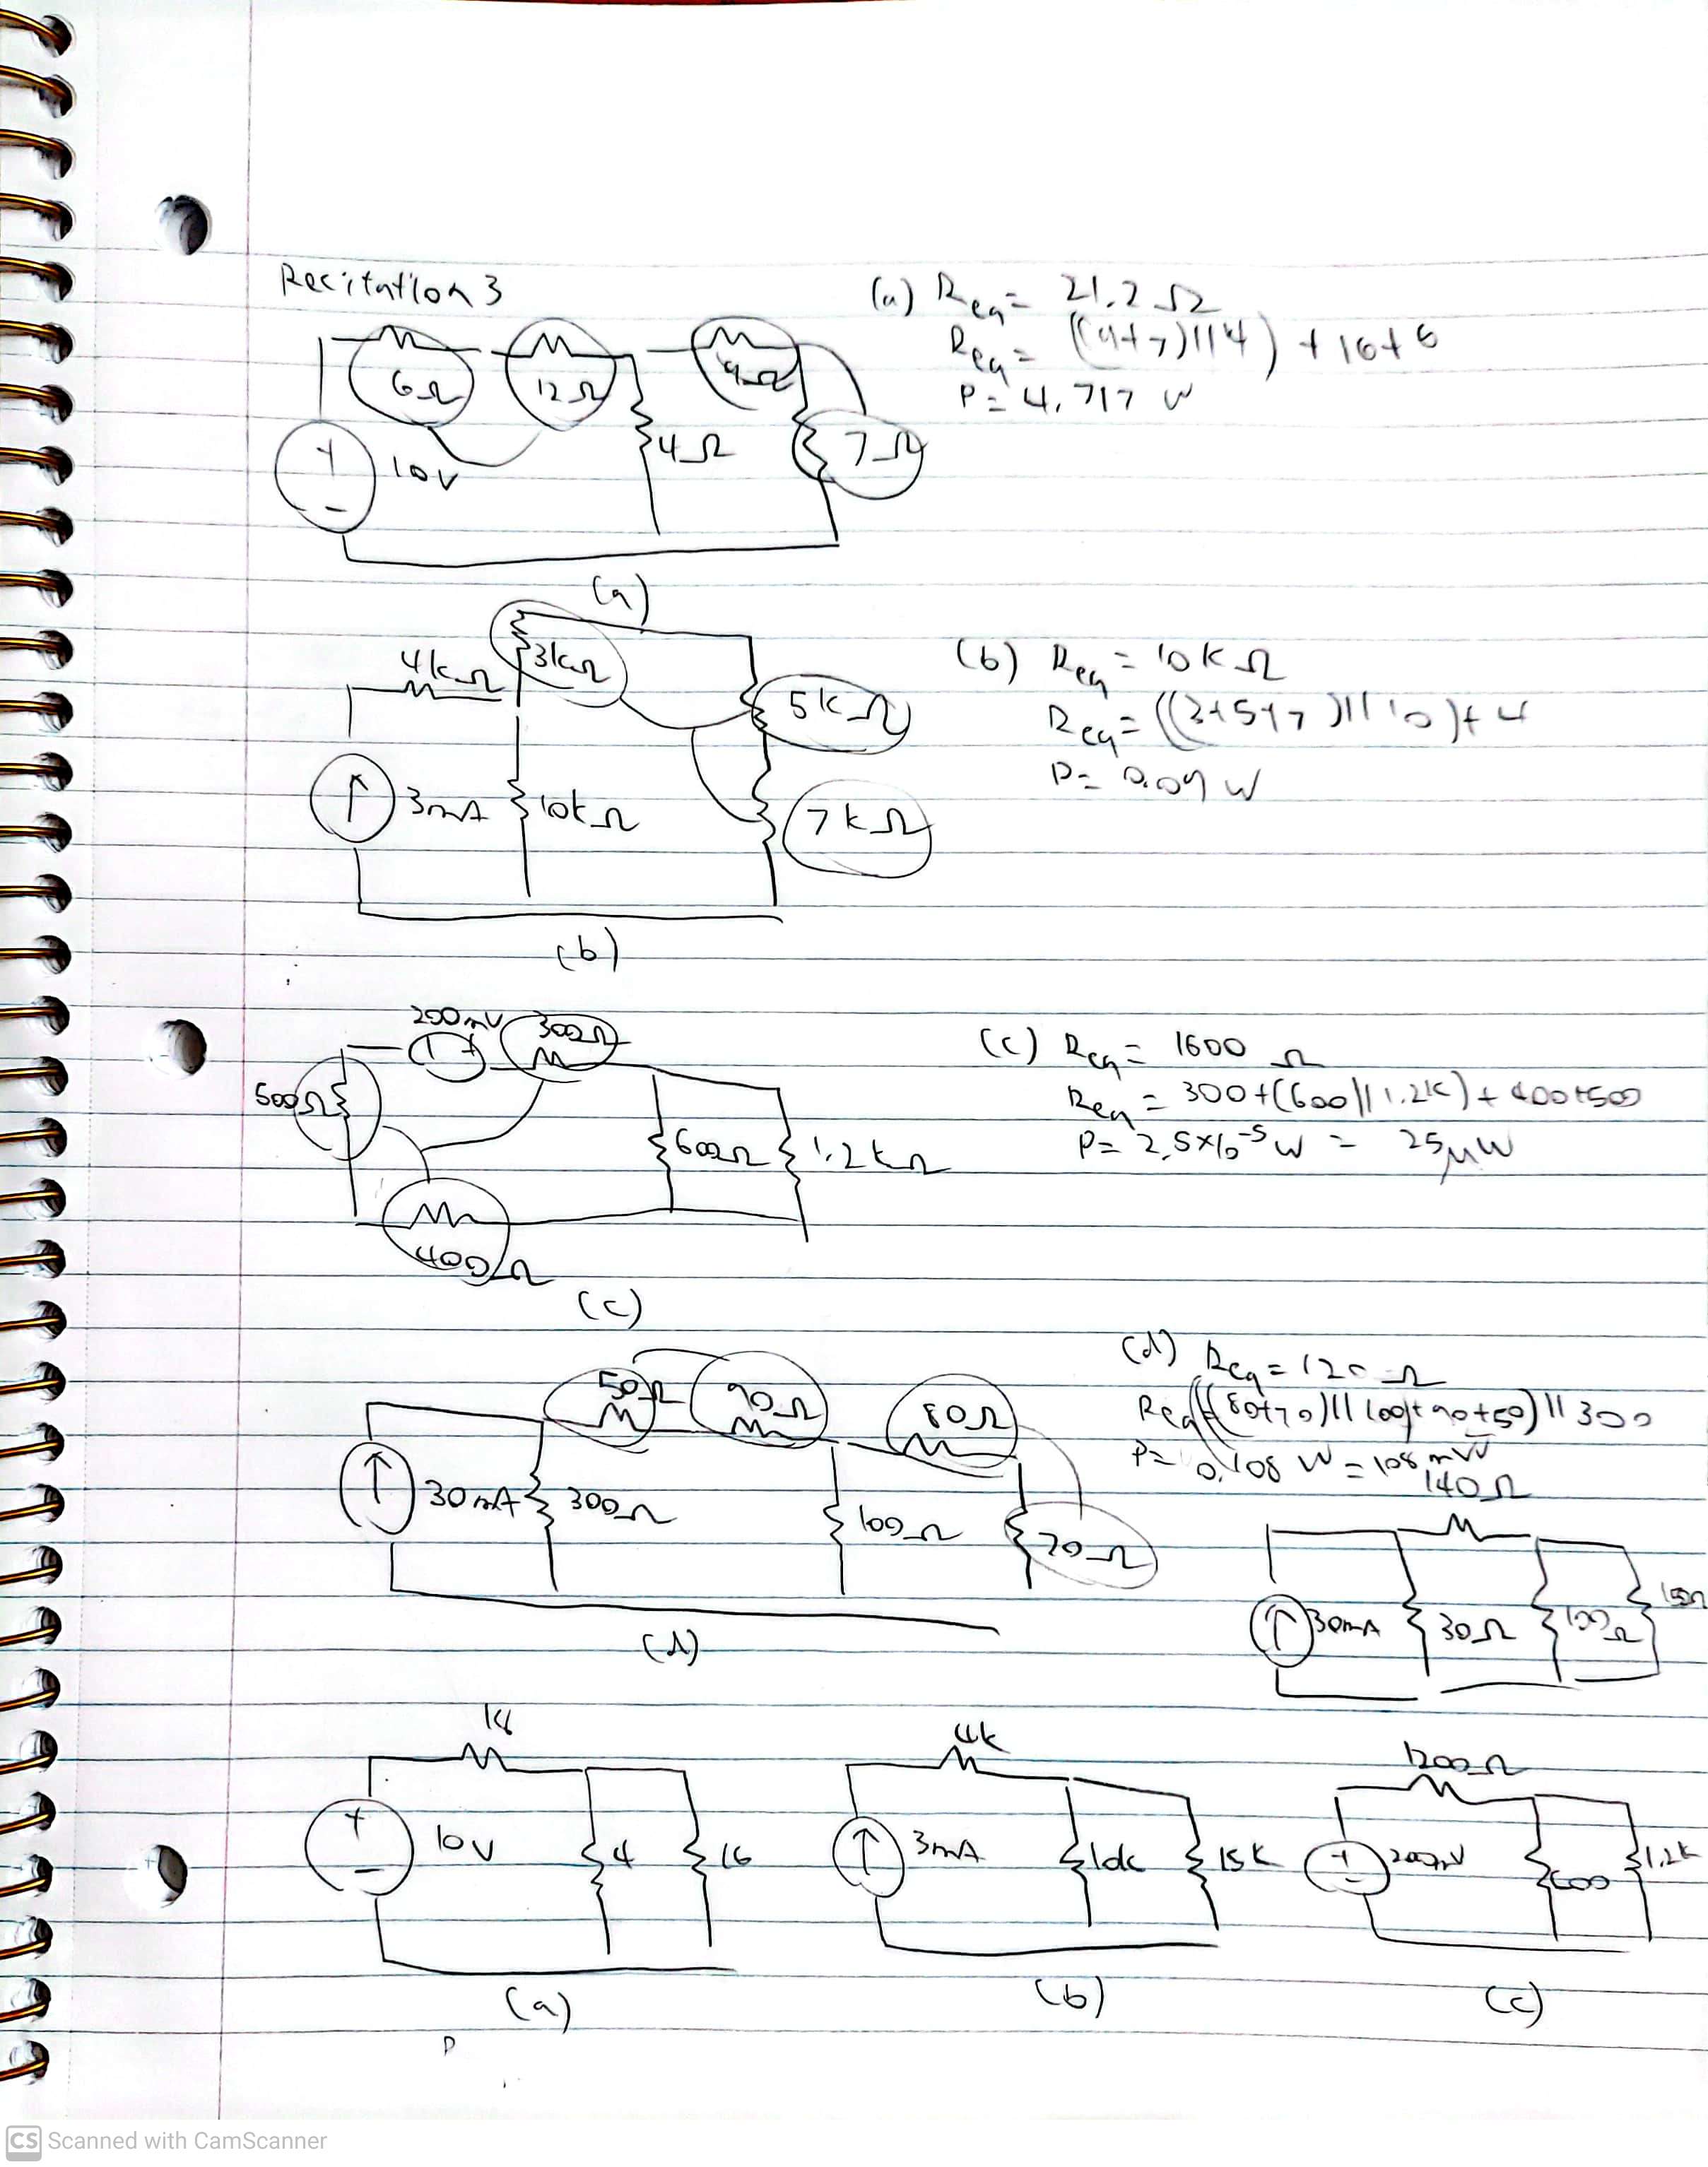 Recitation 3
(a) Req = 21.2 Ω
Req = ((9+7)||4) + 16+6
P = 4.717 W
6Ω 12Ω 9Ω
+ 10V 4Ω 7Ω
-
(a)
4kΩ 3kΩ
5kΩ
3mA 10kΩ 7kΩ
(b) Req = 10kΩ
Req = ((3+5+7)||10)+4
P = 0.09 W
(b)
200mV 300Ω
- +
500Ω
600Ω 1.2kΩ
400Ω
(c) Req = 1600 Ω
Req = 300+(600||1.2k)+400+500
P = 2.5×10⁻⁵ W = 25μW
(c)
50Ω 90Ω 80Ω
30mA 300Ω 100Ω 70Ω
(d) Req = 120 Ω
Req = (((80+70)||100)+90+50)||300
P = 0.108 W = 108 mW
(d)
140Ω
30mA 30Ω 100Ω 150Ω
18
+ 10V 4 16
-
(a)
4k
3mA 10k 15k
(b)
1200Ω
+ 200mV 600 1.2k
-
(c)
P
CS Scanned with CamScanner